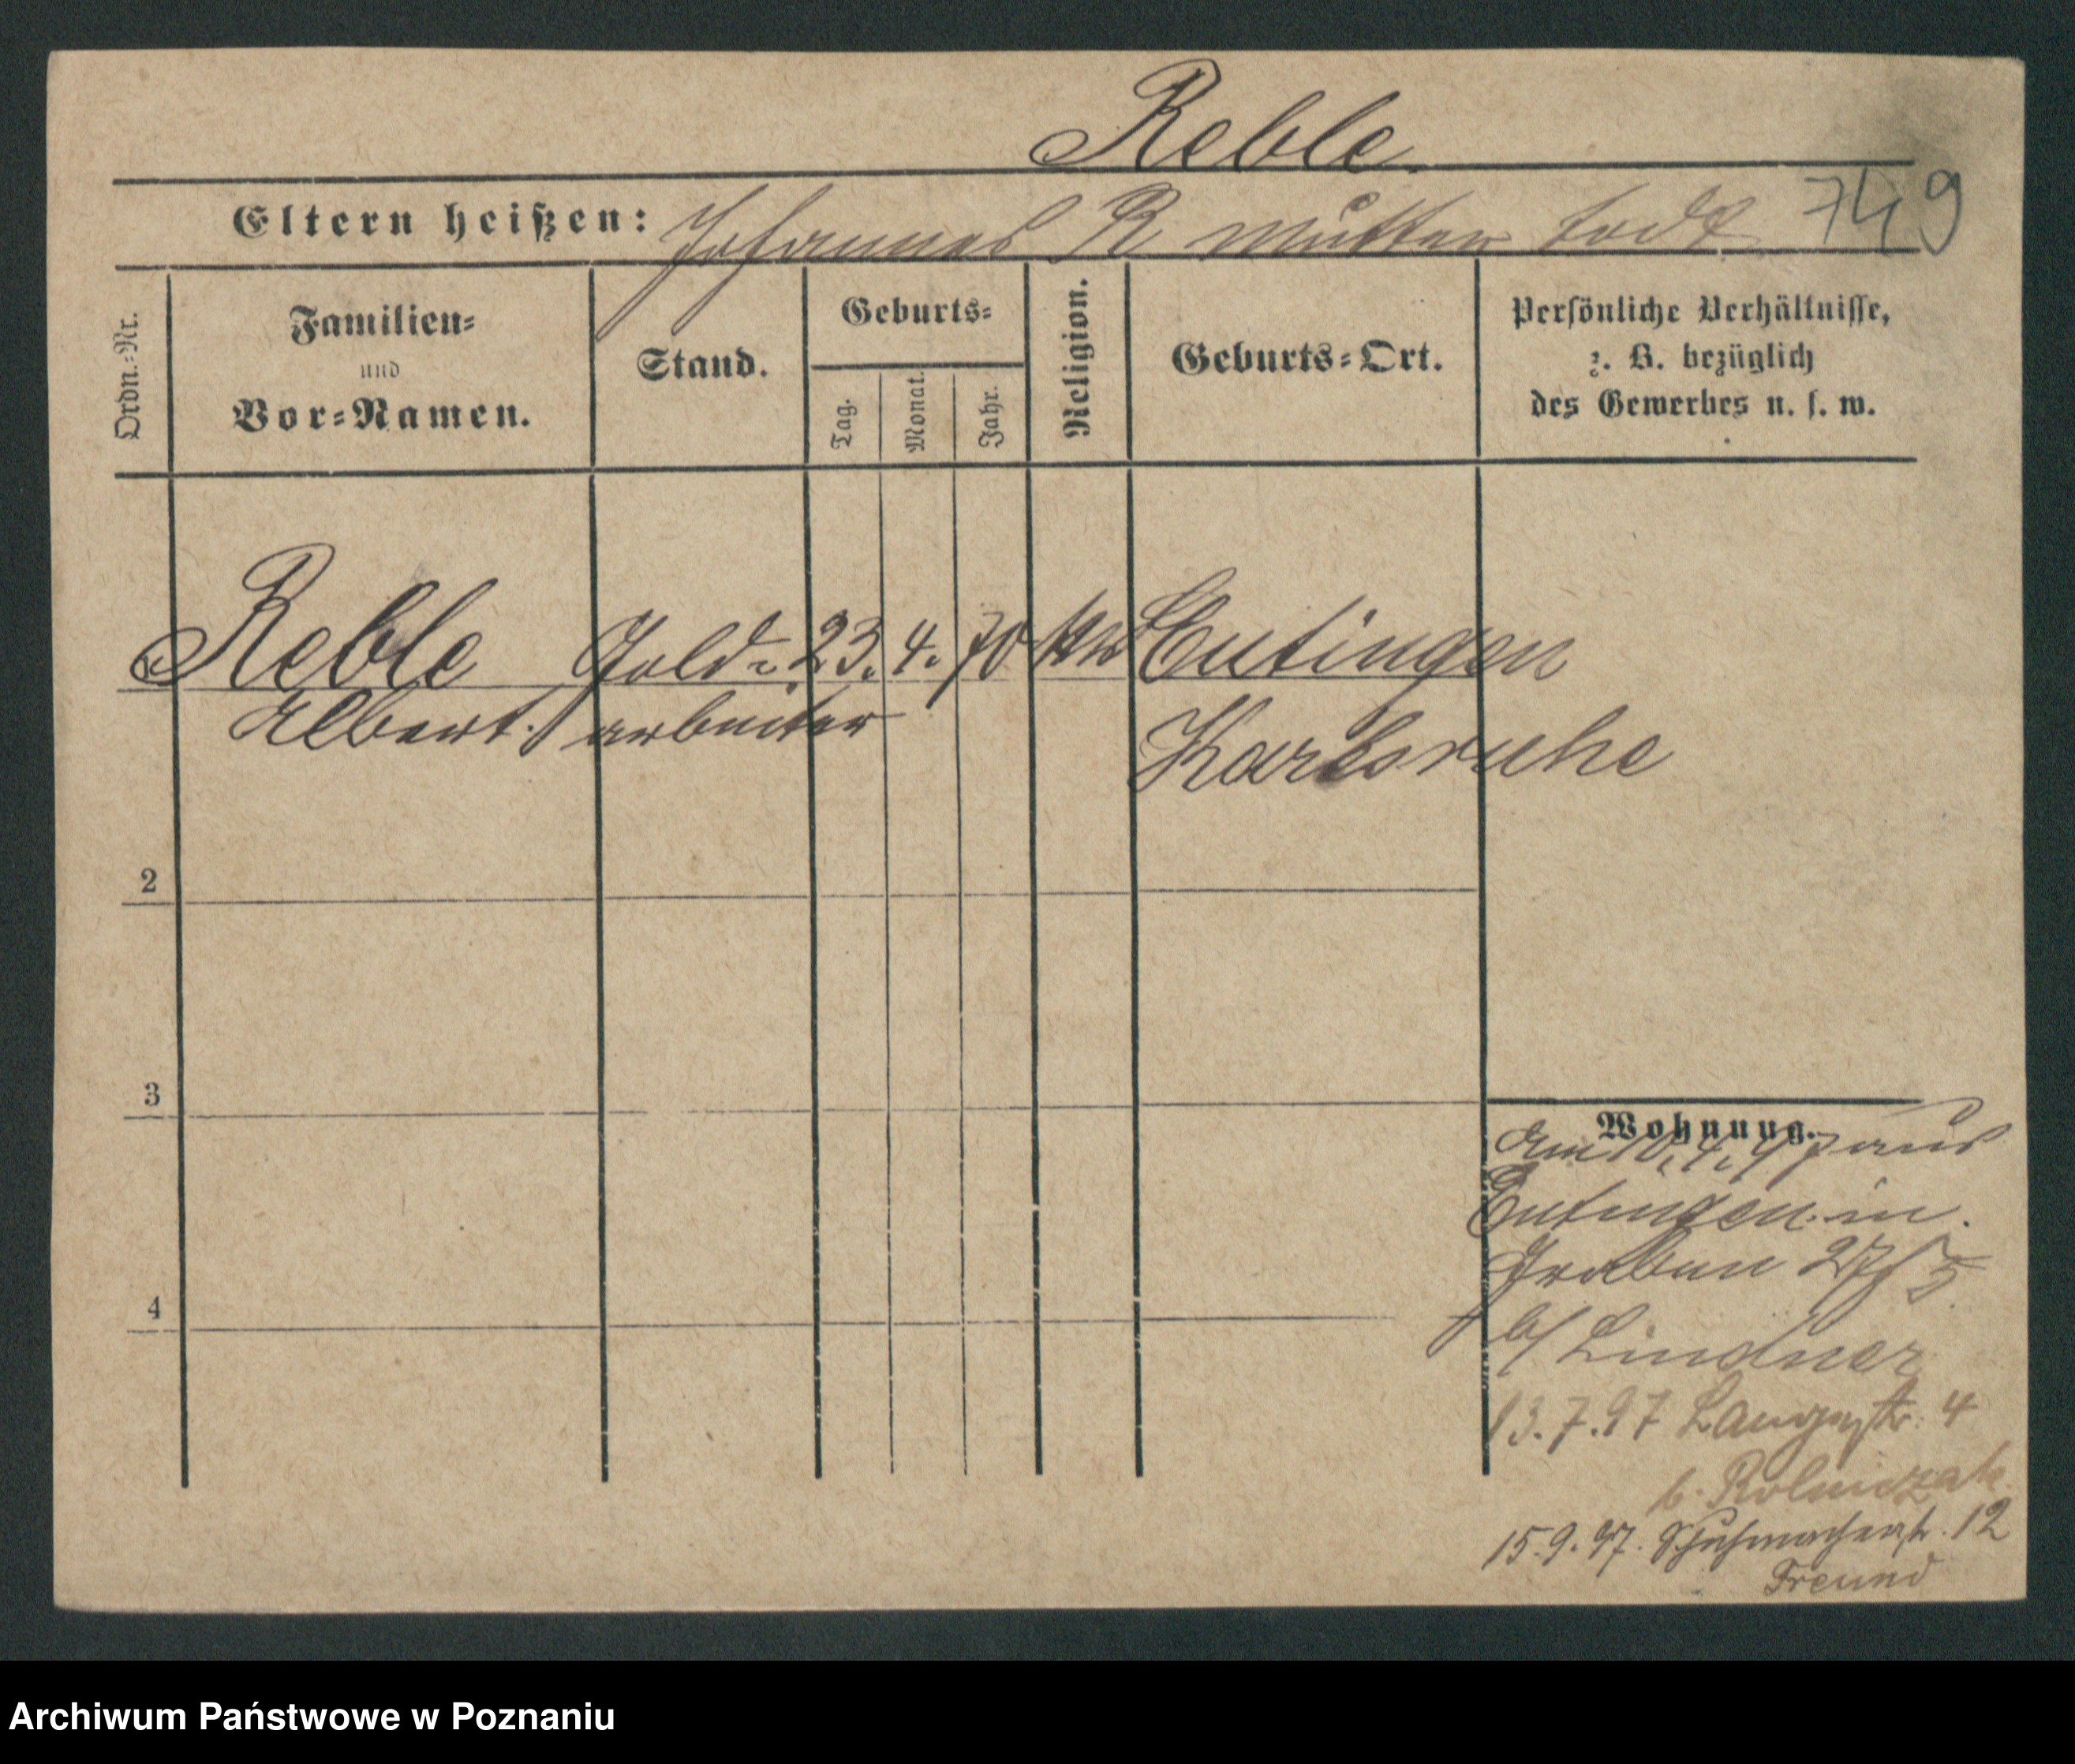 Reble
749
Eltern heißen: Johannes R Mutter todt
Ordn.-Nr.
Familien-
und
Vor-Namen.
Stand.
Geburts-
Tag.
Monat.
Jahr.
Religion.
Geburts-Ort.
Persönliche Verhältnisse,
z. B. bezüglich
des Gewerbes u. s. w.
Reble Gold- 23. 4. 70 Eutingen
Albert. arbeiter Karlsruhe
2
3
4
Wohnung.
Am 10. 4. 97 aus
Eutingen in
Graben 27/5
b/ Lindner
13.7.97 Langestr. 4
b.
15.9.97. Schuhmacherstr. 12
Freund
Archiwum Państwowe w Poznaniu